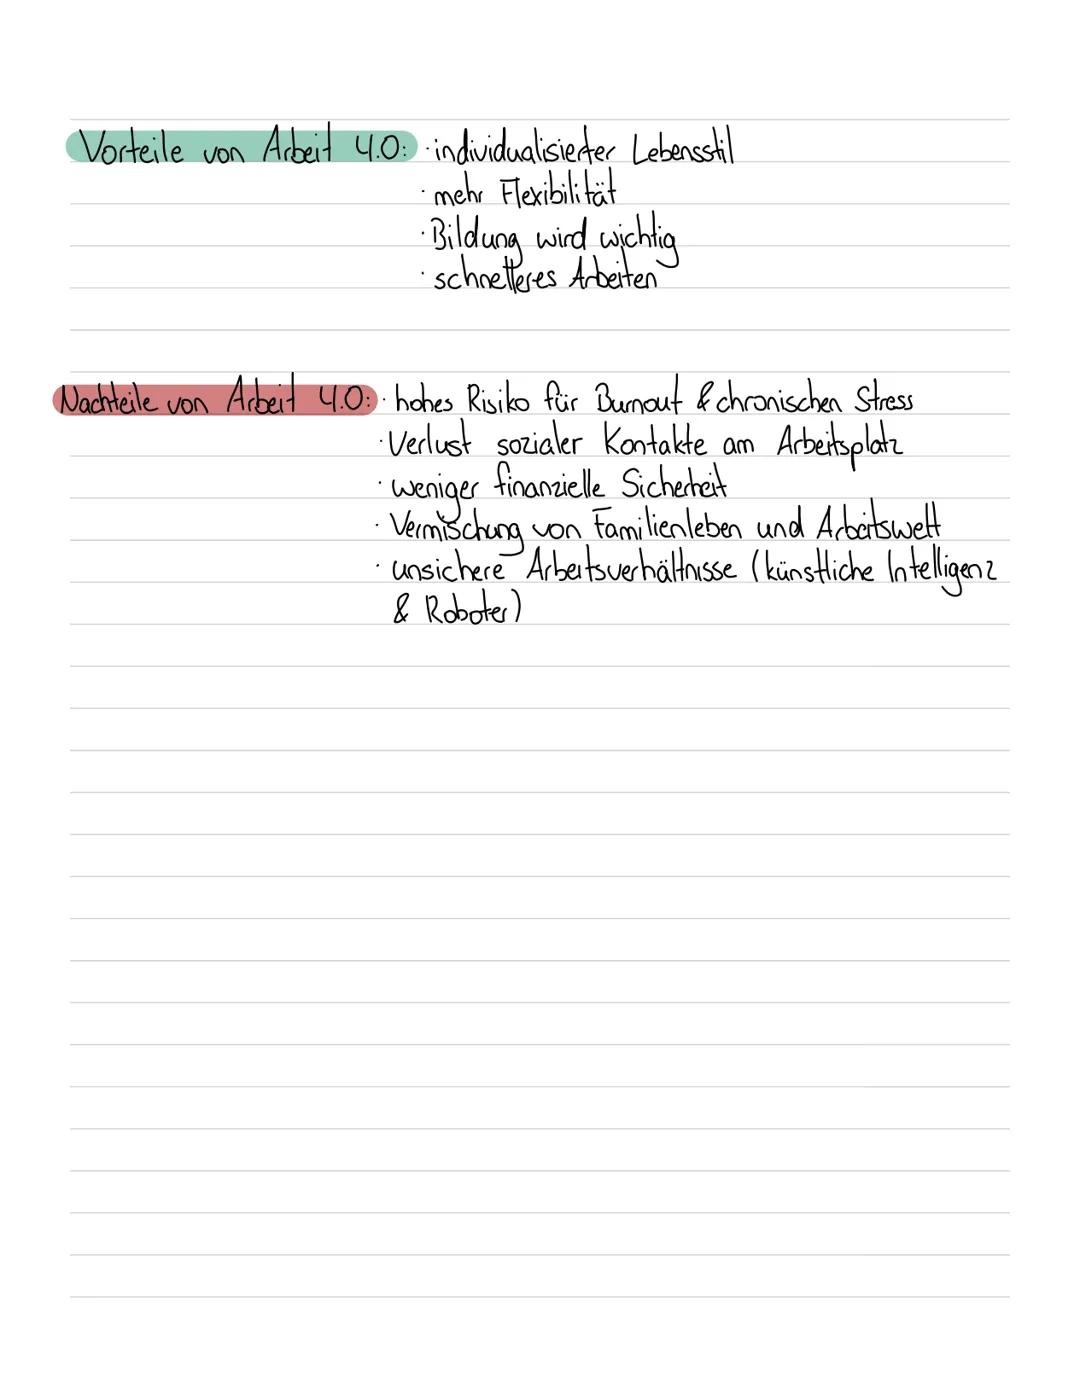 Vorteile von Arbeit 4.0: · individualisierter Lebensstil
· mehr Flexibilität
· Bildung wird wichtig
· schnelleres Arbeiten
Nachteile von Arbeit 4.0: · hohes Risiko für Burnout & chronischen Stress
· Verlust sozialer Kontakte am Arbeitsplatz
· weniger finanzielle Sicherheit
· Vermischung von Familienleben und Arbeitswelt
· unsichere Arbeitsverhältnisse (künstliche Intelligenz
& Roboter)